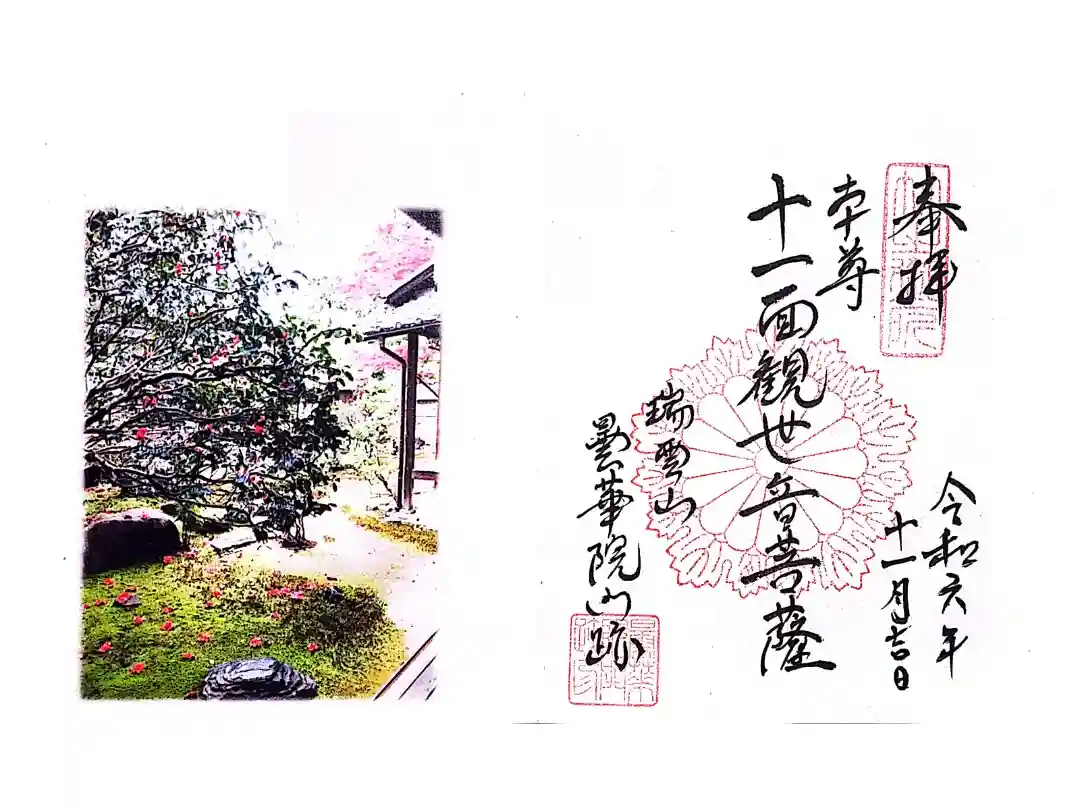 奉拝
令和六年
十一月吉日
本尊
十一面観世音菩薩
瑞雲山
曇華院門跡